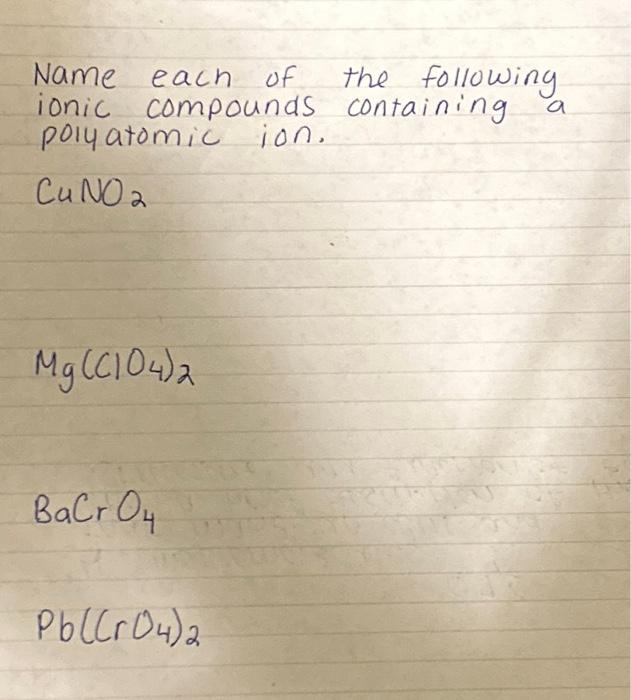 Name each of the following
ionic compounds containing a
polyatomic ion.
CuNO2
Mg(ClO4)2
BaCrO4
Pb(CrO4)2